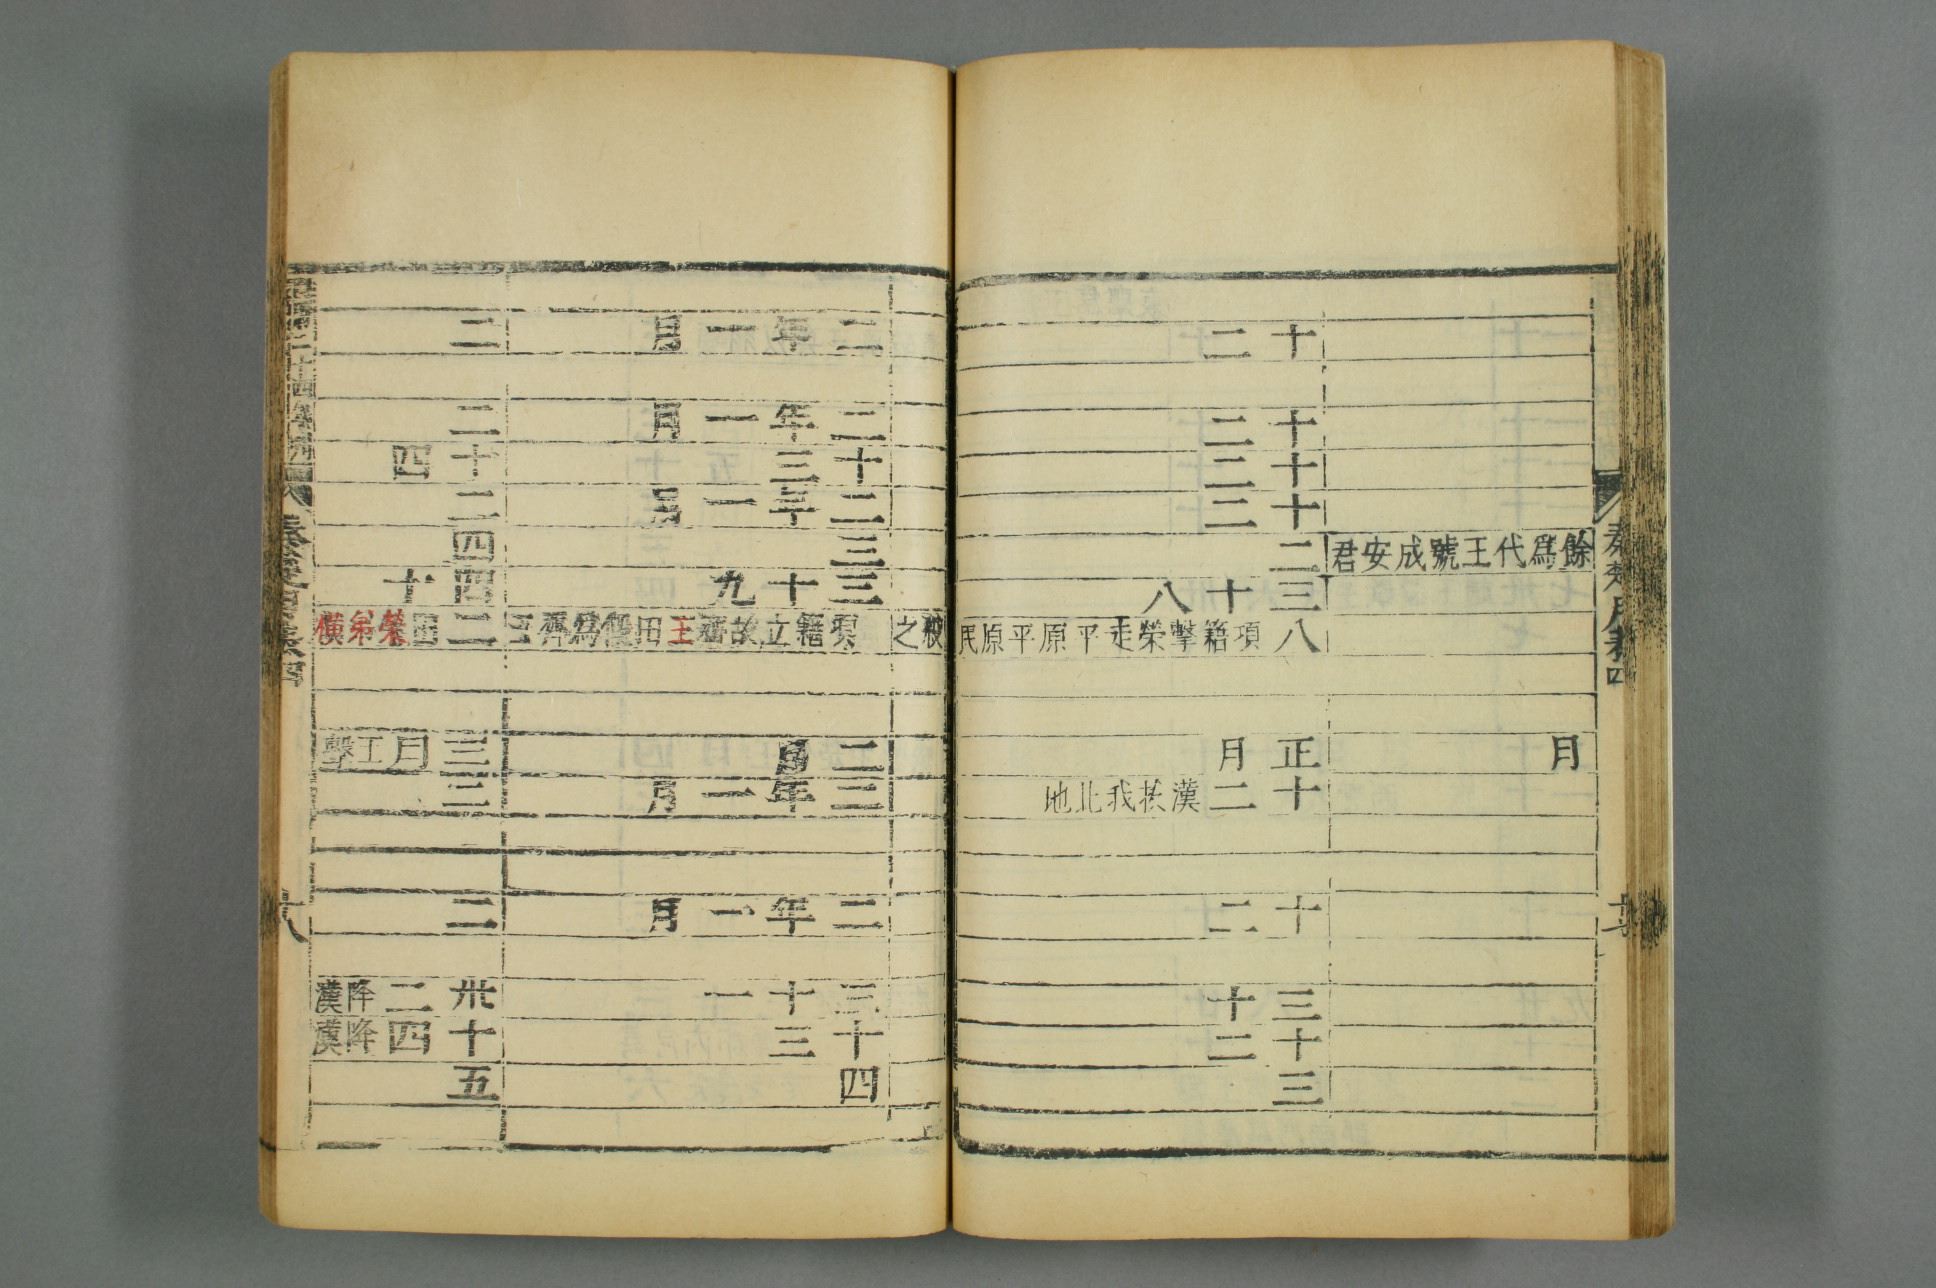 秦楚月表四
餘爲代王號成安君
月
十二
十二
十二
十二
二
三十八
八 項籍擊榮走平原平原民
正月
十二 漢拔我北地
十二
三十
十二
三
殺之
二年一月
二年一月
十三
二年一月
三
三十九
項籍立故齊王田假爲齊王
二月
三年一月
二年一月
三十一
十三
四
二
二
十四
二
四
四十
二 田榮弟橫
三月 王擊
二
二
卅二 降漢
十四 降漢
五
二十四年刊
秦楚月表四
十八